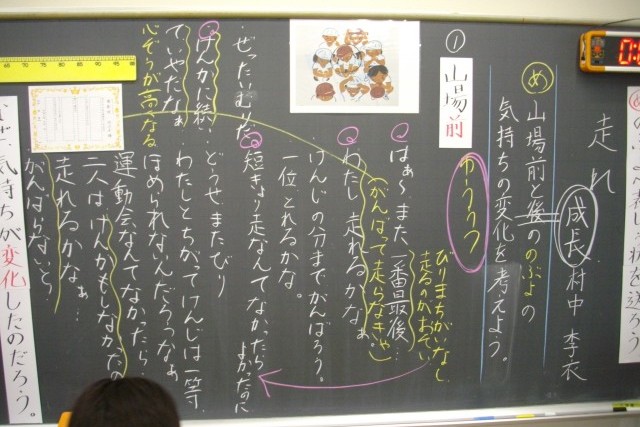 走れ
成長
村中 李衣
め
山場前と後ののぶよの
気持ちの変化を考えよう。
①
山場前
ゆううつ
びりまちがいなし
はぁ〜、また、一番最後…
(がんばって走らなきゃ)
わたし、走れるかなぁ。
けんじの分までがんばろう。
一位とれるかな。
短きょり走なんてなかったら
よかったのに
・ぜったいむりだ。
どうせまたびり
けんかに続い
ていやだなぁ
わたしとちがってけんじは一等、
ほめられないんだろうなぁ
心ぞうが高なる
運動会なんてなかったら
二人はけんかもしなかったの
走れるかなぁ…
がんばらないと…
気持ちが変化したのだろう。